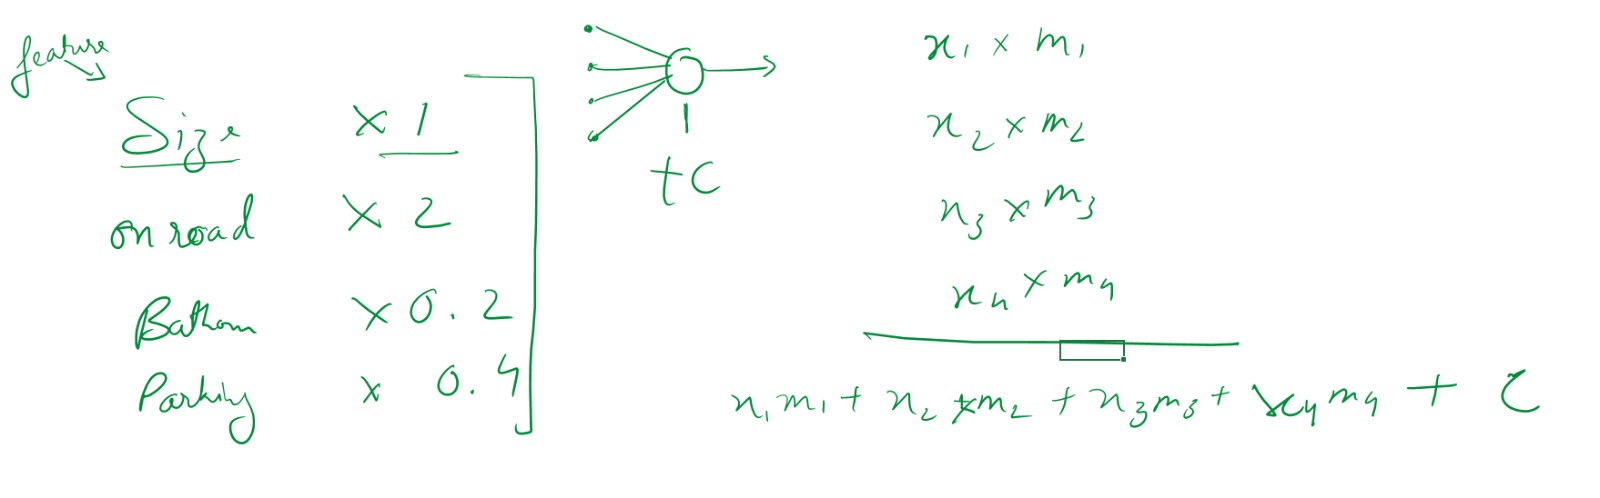 feature
Size x 1
on road x 2
Bathom x 0.2
Parking x 0.4
+C
x₁ x m₁
x₂ x m₂
x₃ x m₃
x₄ x m₄
x₁m₁ + x₂ x m₂ + x₃m₃ + x₄m₄ + C